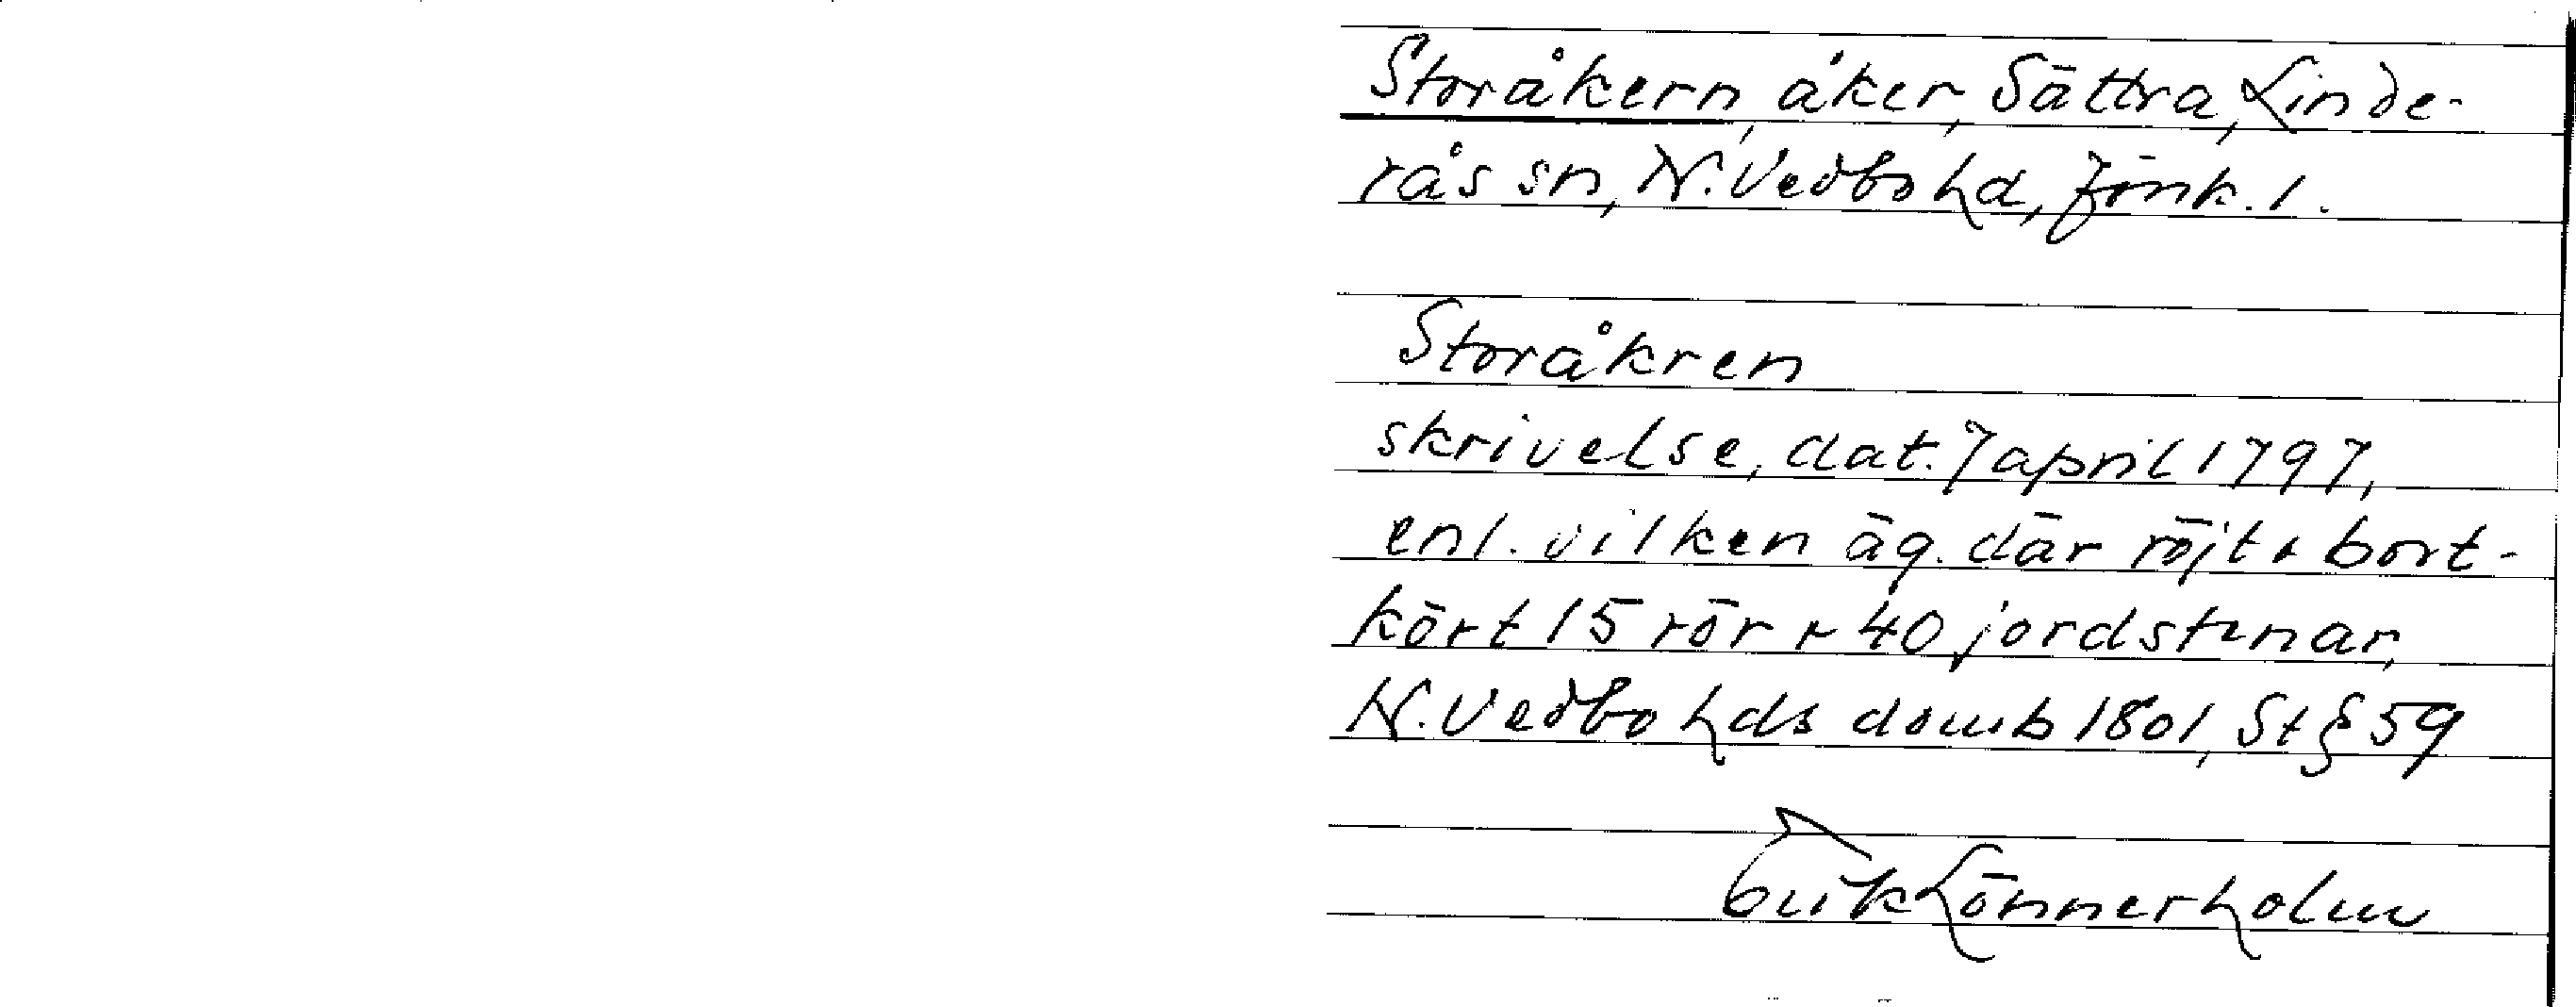 Storåkern, åker, Sättra, Linde-
rås sn, N. Vedbo hd, Jönk. l.
Storåkren
skrivelse, dat. 7 april 1797,
enl. vilken äg. där röjt & bort-
kört 15 rör & 40 jordstenar,
N. Vedbo hds domb 1801, St § 59
Erik Lönnerholm